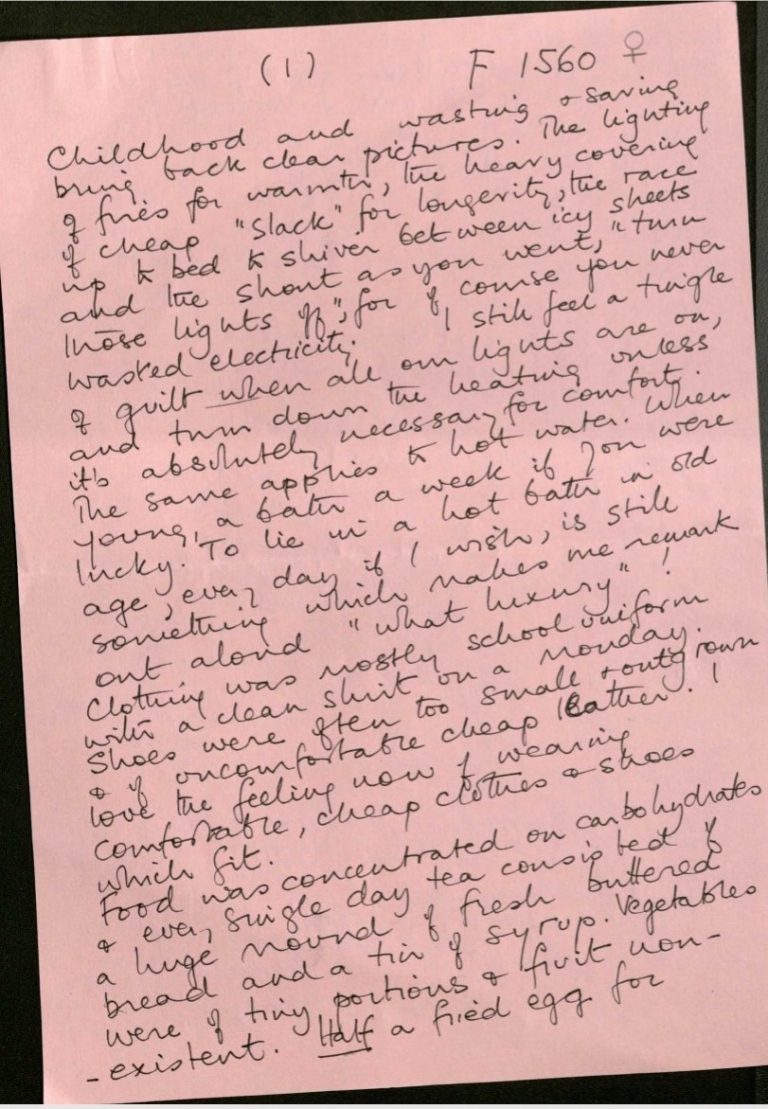 (1) F 1560 ♀
Childhood and wasting & saving
bring back clear pictures. The lighting
of fires for warmth, the heavy covering
of cheap "slack" for longevity, the race
up to bed to shiver between icy sheets
and the shout as you went, "turn
those lights off", for of course you never
wasted electricity. I still feel a twinge
of guilt when all our lights are on,
and turn down the heating unless
it's absolutely necessary for comfort.
The same applies to hot water. When
young, a bath a week if you were
lucky. To lie in a hot bath in old
age, every day if I wish, is still
something which makes me remark
out aloud "what luxury"!
Clothing was mostly school uniform
with a clean shirt on a Monday.
Shoes were often too small & outgrown
& of uncomfortable cheap leather. I
love the feeling now of wearing
comfortable, cheap clothes & shoes
which fit.
Food was concentrated on carbohydrates
& every single day tea consisted of
a huge mound of fresh buttered
bread and a tin of syrup. Vegetables
were of tiny portions & fruit non-
-existent. Half a fried egg for